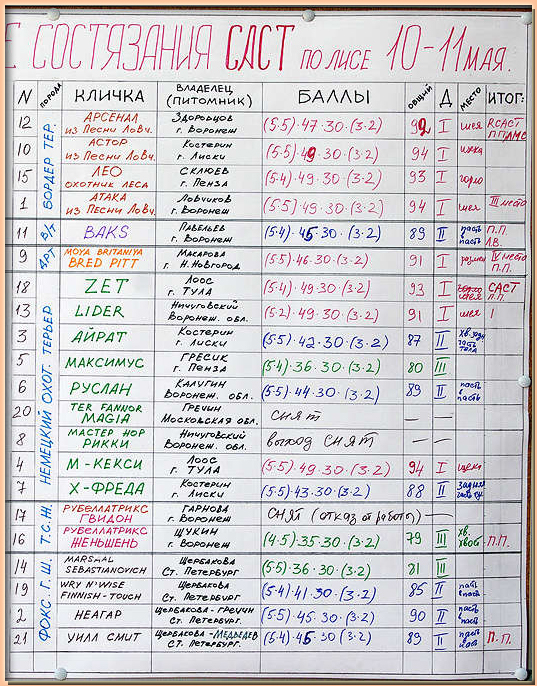 Е СОСТЯЗАНИЯ САСТ ПО ЛИСЕ 10-11 МАЯ.
N ПОРОДА КЛИЧКА ВЛАДЕЛЕЦ (ПИТОМНИК) БАЛЛЫ ОБЩИЙ Д МЕСТО ИТОГ:
БОРДЕР ТЕР.
12 АРСЕНАЛ из Песни Ловч. Здоровцов г. Воронеж (5·5)·47·30·(3·2) 92 I шея RCACT П.П.ЛМС
10 АСТОР из Песни Ловч. Костерин г. Лиски (5·5)·49·30·(3·2) 94 I
15 ЛЕО охотник леса СКЛЮЕВ г. Пенза (5·4)·49·30·(3·2) 93 I горло
1 АТАКА из Песни Ловч. Ловчиков г. Воронеж (5·5)·49·30·(3·2) 94 I шея III место
11 BAKS г. Воронеж (5·4)·45·30·(3·2) 89 II пасть в пасть П.П. ЛВ.
9 MOYA BRITANIYA BRED PITT Макарова г. Н.Новгород (5·5)·46·30·(3·2) 91 I IV место П.П.
НЕМЕЦКИЙ ОХОТ. ТЕРЬЕР
18 ZET Лоос г. ТУЛА (5·4)·49·30·(3·2) 93 I шея САСТ П.П.
13 LIDER Ничуговский Воронеж. обл. (5·2)·49·30·(3·2) 91 I шея I
3 АЙРАТ Костерин г. Лиски (5·5)·42·30·(3·2) 87 II часть тела
5 МАКСИМУС ГРЕСИК г. Пенза (5·4)·36·30·(3·2) 80 III
6 РУСЛАН КАЛУГИН Воронеж. обл. (5·5)·44·30·(3·2) 89 II пасть в пасть
20 TER FANNOR MAGIA Гречин Московская обл. СНЯТ — —
8 МАСТЕР НОР РИККИ Ничуговский Воронеж. обл. выход СНЯТ — —
4 М-КЕКСИ Лоос г. ТУЛА (5·5)·49·30·(3·2) 94 I щека
7 Х-ФРЕДА Костерин г. Лиски (5·5)·43·30·(3·2) 88 II
Т.С.Ж.
17 РУБЕЛЛАТРИКС ГВИДОН ГАРНОВА г. Воронеж СНЯТ (отказ от работы) — —
16 РУБЕЛЛАТРИКС ЖЕНЬШЕНЬ ЩУКИН г. Воронеж (4·5)·35·30·(3·2) 79 III хв. хвост П.П.
ФОКС. Г.Ш.
14 MARSHAL SEBASTIANOVICH Щербакова Ст. Петербург (5·5)·36·30·(3·2) 81 III
19 WRY N'WISE FINNISH-TOUCH Щербакова Ст. Петербург (5·4)·41·30·(3·2) 85 II пасть в пасть
2 НЕАГАР Щербакова - Гречин Ст. Петербург. (5·5)·45·30·(3·2) 90 II пасть в пасть
21 УИЛЛ СМИТ Щербакова - МЕДВЕДЕВ Ст. Петербург. (5·4)·45·30·(3·2) 89 II пасть в пасть П.П.